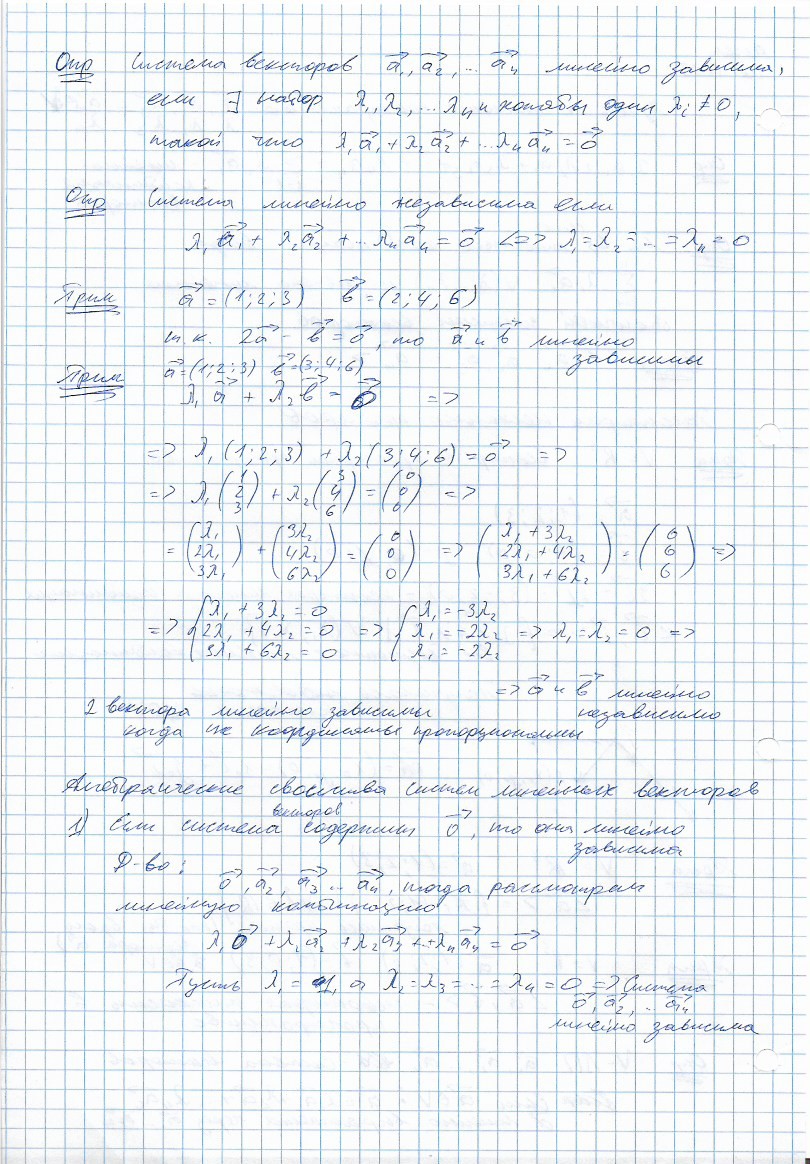 Опр Система векторов a⃗₁, a⃗₂, ... a⃗ₙ линейно зависима,
если ∃ набор λ₁, λ₂, ... λₙ и хотябы один λᵢ ≠ 0,
такой что λ₁a⃗₁ + λ₂a⃗₂ + ... λₙa⃗ₙ = 0⃗
Опр Система линейно независима если
λ₁a⃗₁ + λ₂a⃗₂ + ... λₙa⃗ₙ = 0⃗ <=> λ₁ = λ₂ = ... = λₙ = 0
Прим a⃗ = (1; 2; 3) в⃗ = (2; 4; 6)
т.к. 2a⃗ - в⃗ = 0⃗, то a⃗ и в⃗ линейно
зависимы
Прим a⃗ = (1; 2; 3) в⃗ = (3; 4; 6)
λ₁a⃗ + λ₂в⃗ = 0⃗ =>
=> λ₁(1; 2; 3) + λ₂(3; 4; 6) = 0⃗ =>
=> λ₁(1 2 3) + λ₂(3 4 6) = (0 0 0) =>
= (λ₁ 2λ₁ 3λ₁) + (3λ₂ 4λ₂ 6λ₂) = (0 0 0) => (λ₁ + 3λ₂ 2λ₁ + 4λ₂ 3λ₁ + 6λ₂) = (0 0 0) =>
=> { λ₁ + 3λ₂ = 0 2λ₁ + 4λ₂ = 0 3λ₁ + 6λ₂ = 0 => { λ₁ = -3λ₂ λ₁ = -2λ₂ λ₁ = -2λ₂ => λ₁ = λ₂ = 0 =>
=> a⃗ и в⃗ линейно
независимо
2 вектора линейно зависимы
когда их координаты пропорциональны
Алгебраические свойства систем линейных векторов
1) Если система векторов содержит 0⃗, то она линейно
зависима
Д-во:
0⃗, a⃗₂, a⃗₃ ... a⃗ₙ, тогда рассмотрим
линейную комбинацию
λ₁0⃗ + λ₂a⃗₂ + λ₂a⃗₃ + ... + λₙa⃗ₙ = 0⃗
Пусть λ₁ = 1, а λ₂ = λ₃ = ... = λₙ = 0 => Система
0⃗, a⃗₂, ... a⃗ₙ
линейно зависима